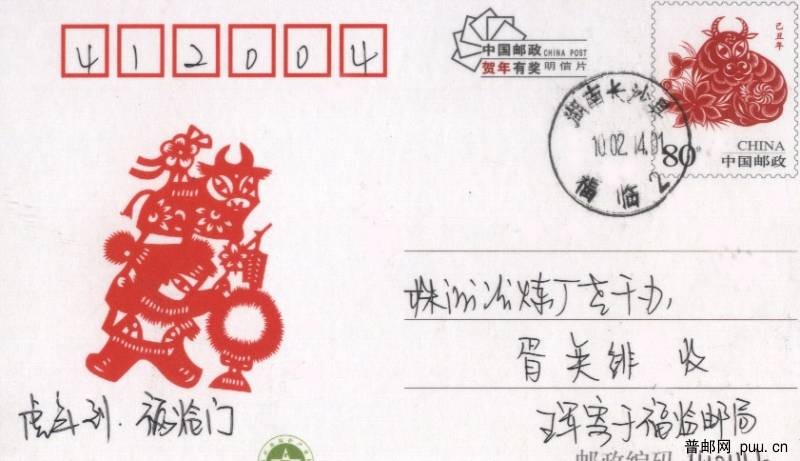 412004
中国邮政 CHINA POST
贺年有奖 明信片
己丑年
CHINA
80分 中国邮政
湖南长沙县
10.02.14.01
福临 2
株洲冶炼厂老干办
胥英绯 收
王军寄于福临邮局
虎年到.福临门
邮政编码
普邮网 puu.cn